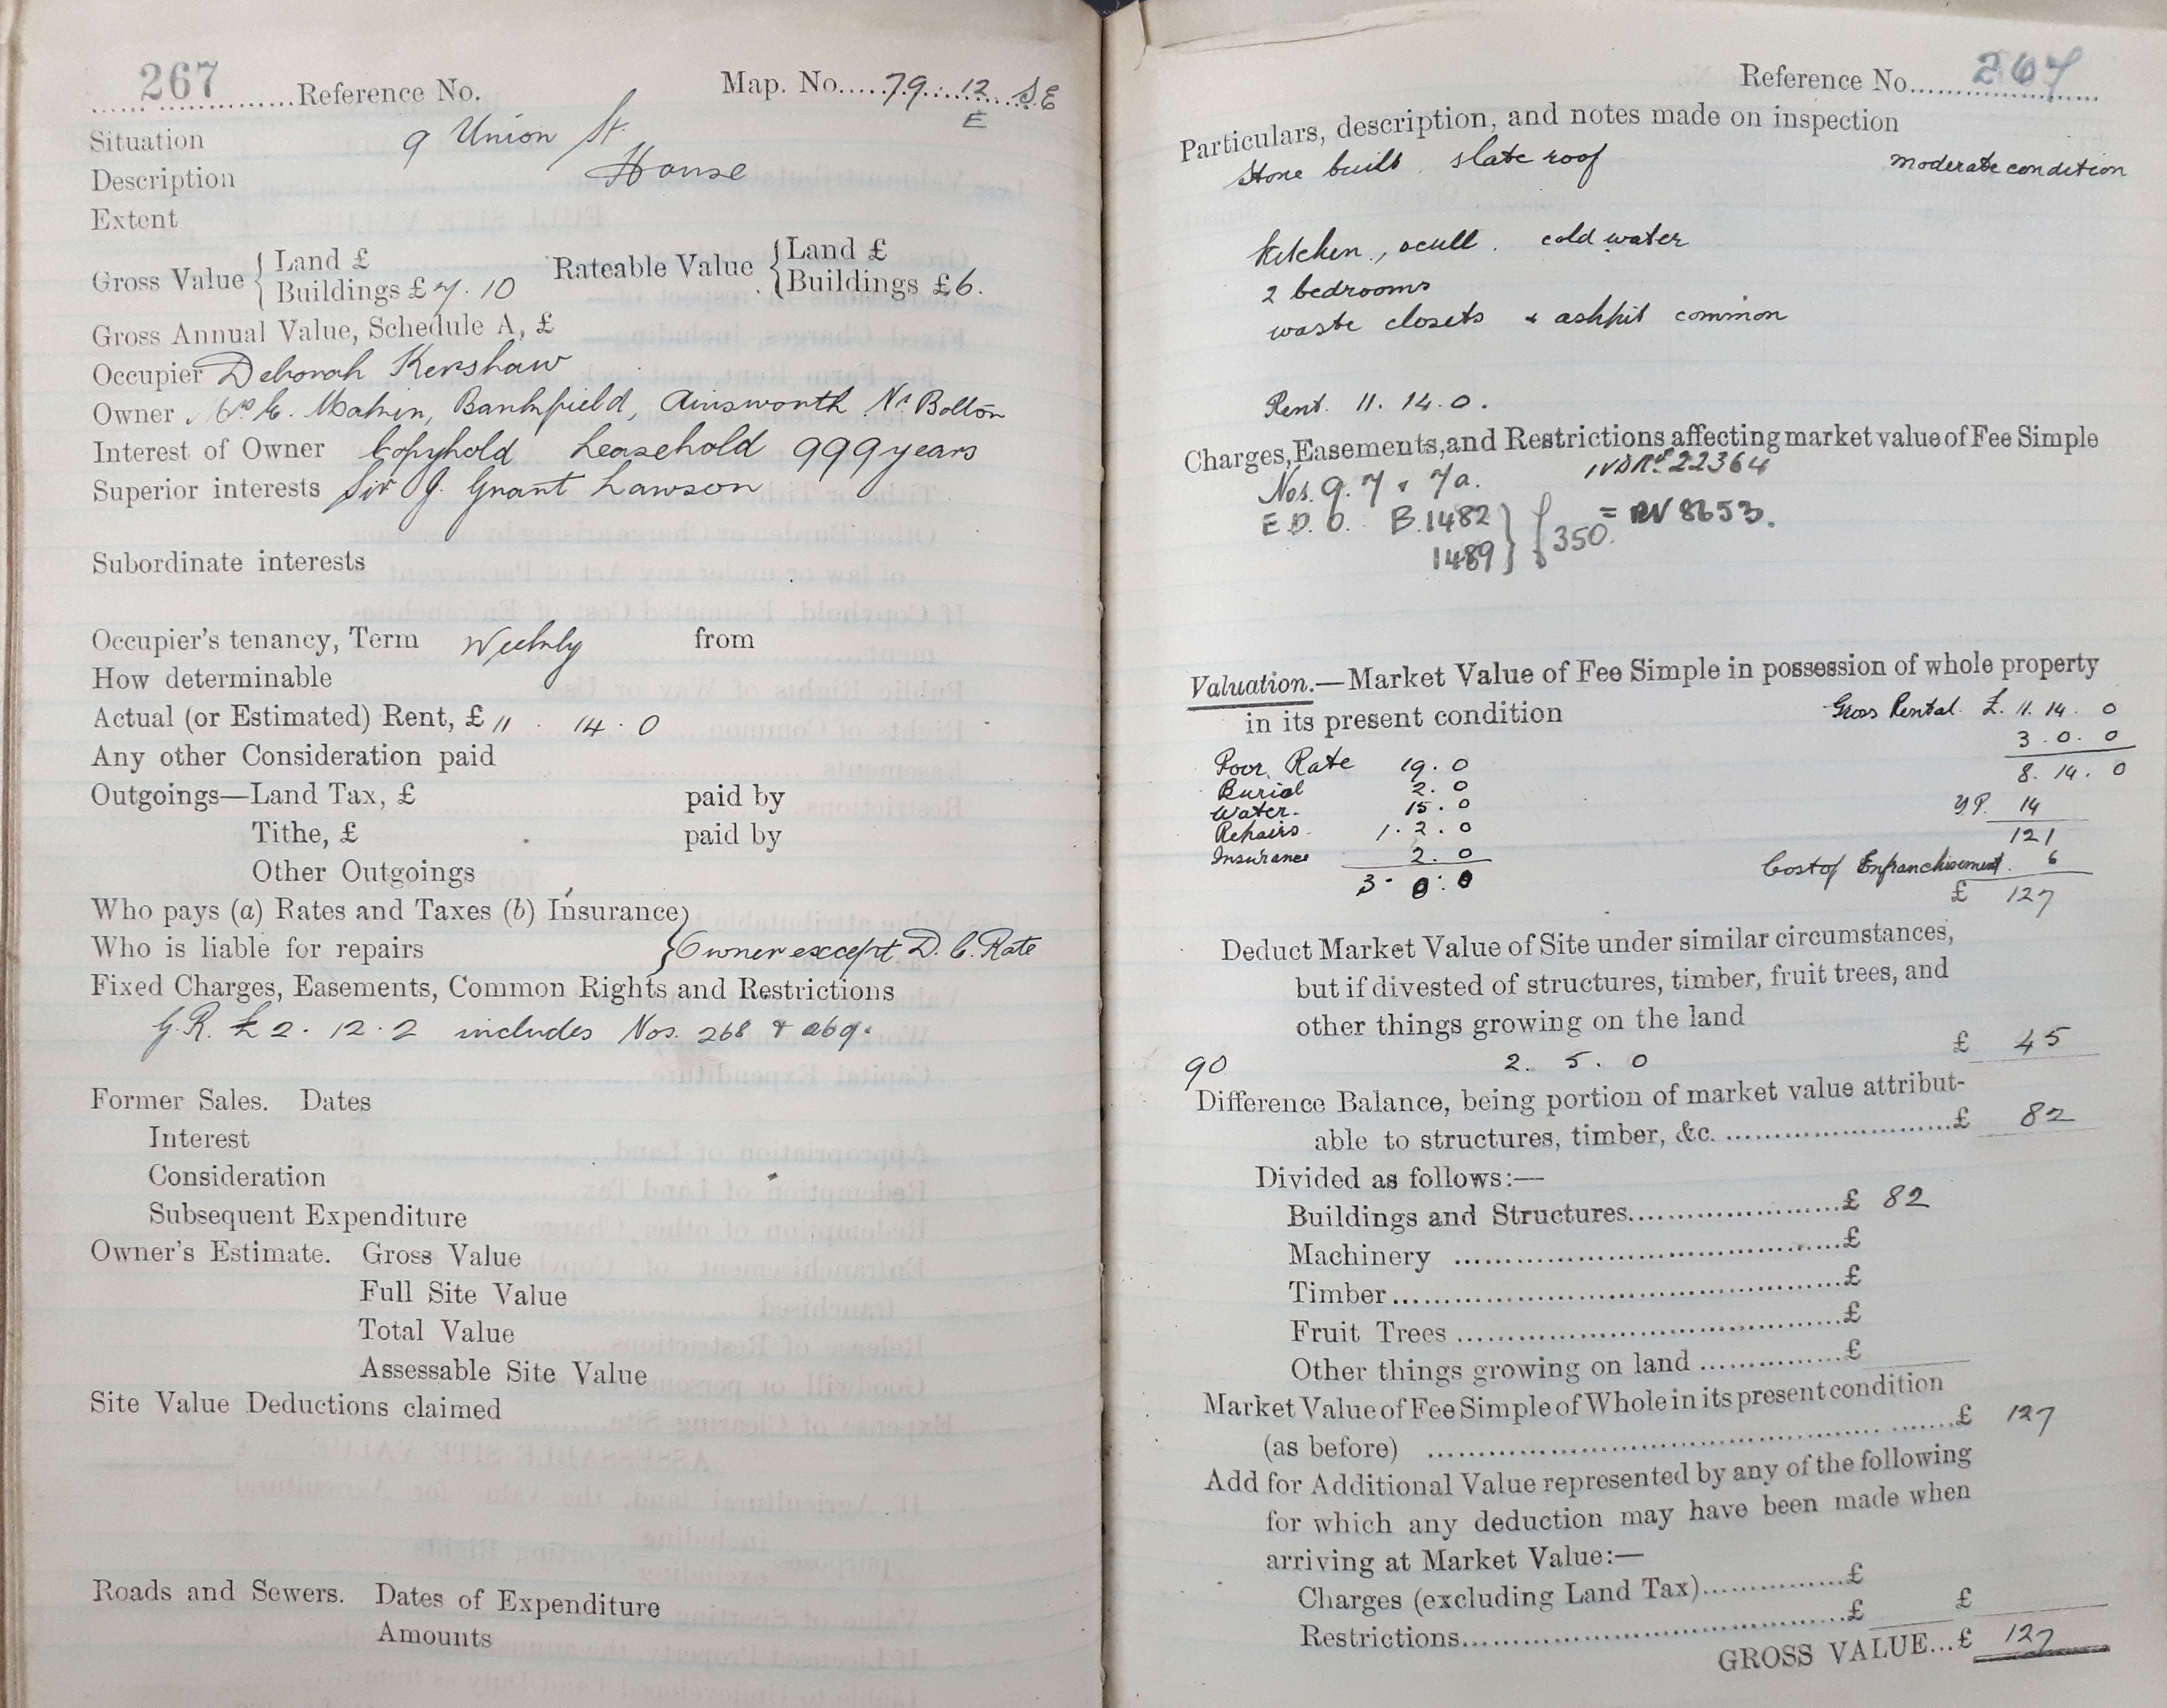 267 Reference No. Map. No. 79. 12 S.E
E
Situation 9 Union St.
Description House
Extent
Gross Value { Land £ Rateable Value { Land £
Buildings £ 7. 10 Buildings £6.
Gross Annual Value, Schedule A, £
Occupier Deborah Kershaw
Owner E. Bankfield, Ainsworth Nr. Bolton
Interest of Owner Copyhold Leasehold 999 years
Superior interests Sir J. Grant Lawson
Subordinate interests
Occupier's tenancy, Term Weekly from
How determinable
Actual (or Estimated) Rent, £ 11 . 14 . 0
Any other Consideration paid
Outgoings—Land Tax, £ paid by
Tithe, £ paid by
Other Outgoings
Who pays (a) Rates and Taxes (b) Insurance }
Who is liable for repairs } Owner except D. C. Rate
Fixed Charges, Easements, Common Rights and Restrictions
G.R. £2. 12. 2 includes Nos. 268 & 269.
Former Sales. Dates
Interest
Consideration
Subsequent Expenditure
Owner's Estimate. Gross Value
Full Site Value
Total Value
Assessable Site Value
Site Value Deductions claimed
Roads and Sewers. Dates of Expenditure
Amounts
Reference No. 267
Particulars, description, and notes made on inspection
Stone built, slate roof moderate condition
Kitchen, scull. cold water
2 bedrooms
waste closets & ashpit common
Rent. 11. 14. 0.
Charges, Easements, and Restrictions affecting market value of Fee Simple
Nos. 9. 7 & 7a. 22364
E.D.O. B.1482 } { 350. = RV 8653.
1489
Valuation.—Market Value of Fee Simple in possession of whole property
in its present condition Gross Rental £. 11. 14. 0
3. 0. 0
Poor Rate 19. 0 8. 14. 0
Burial 2. 0
Water. 15. 0 Y.P. 14
Repairs. 1. 2. 0 121
Insurance 2. 0 Cost of Enfranchisement. 6
3. 0. 0 £ 127
Deduct Market Value of Site under similar circumstances,
but if divested of structures, timber, fruit trees, and
other things growing on the land
90 2. 5. 0 £ 45
Difference Balance, being portion of market value attribut-
able to structures, timber, &c. £ 82
Divided as follows:—
Buildings and Structures £ 82
Machinery £
Timber £
Fruit Trees £
Other things growing on land £
Market Value of Fee Simple of Whole in its present condition
(as before) £ 127
Add for Additional Value represented by any of the following
for which any deduction may have been made when
arriving at Market Value:—
Charges (excluding Land Tax) £
Restrictions £ £
GROSS VALUE...£ 127